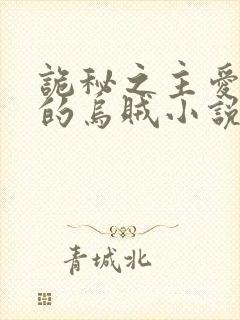 詭秘之主愛
的烏賊小說
青城北